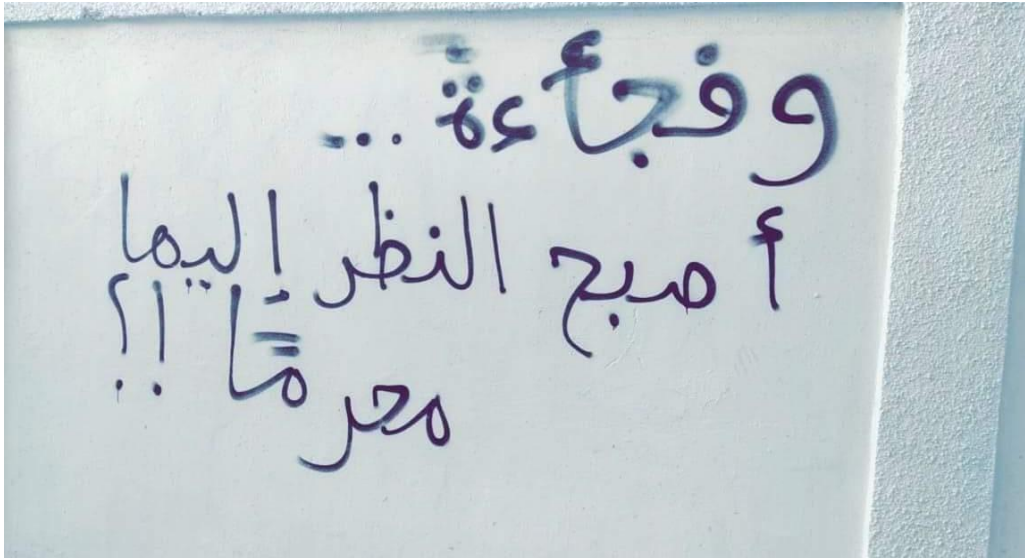 وفجأءةً ...
أصبح النظر إليها
محرمًا !؟